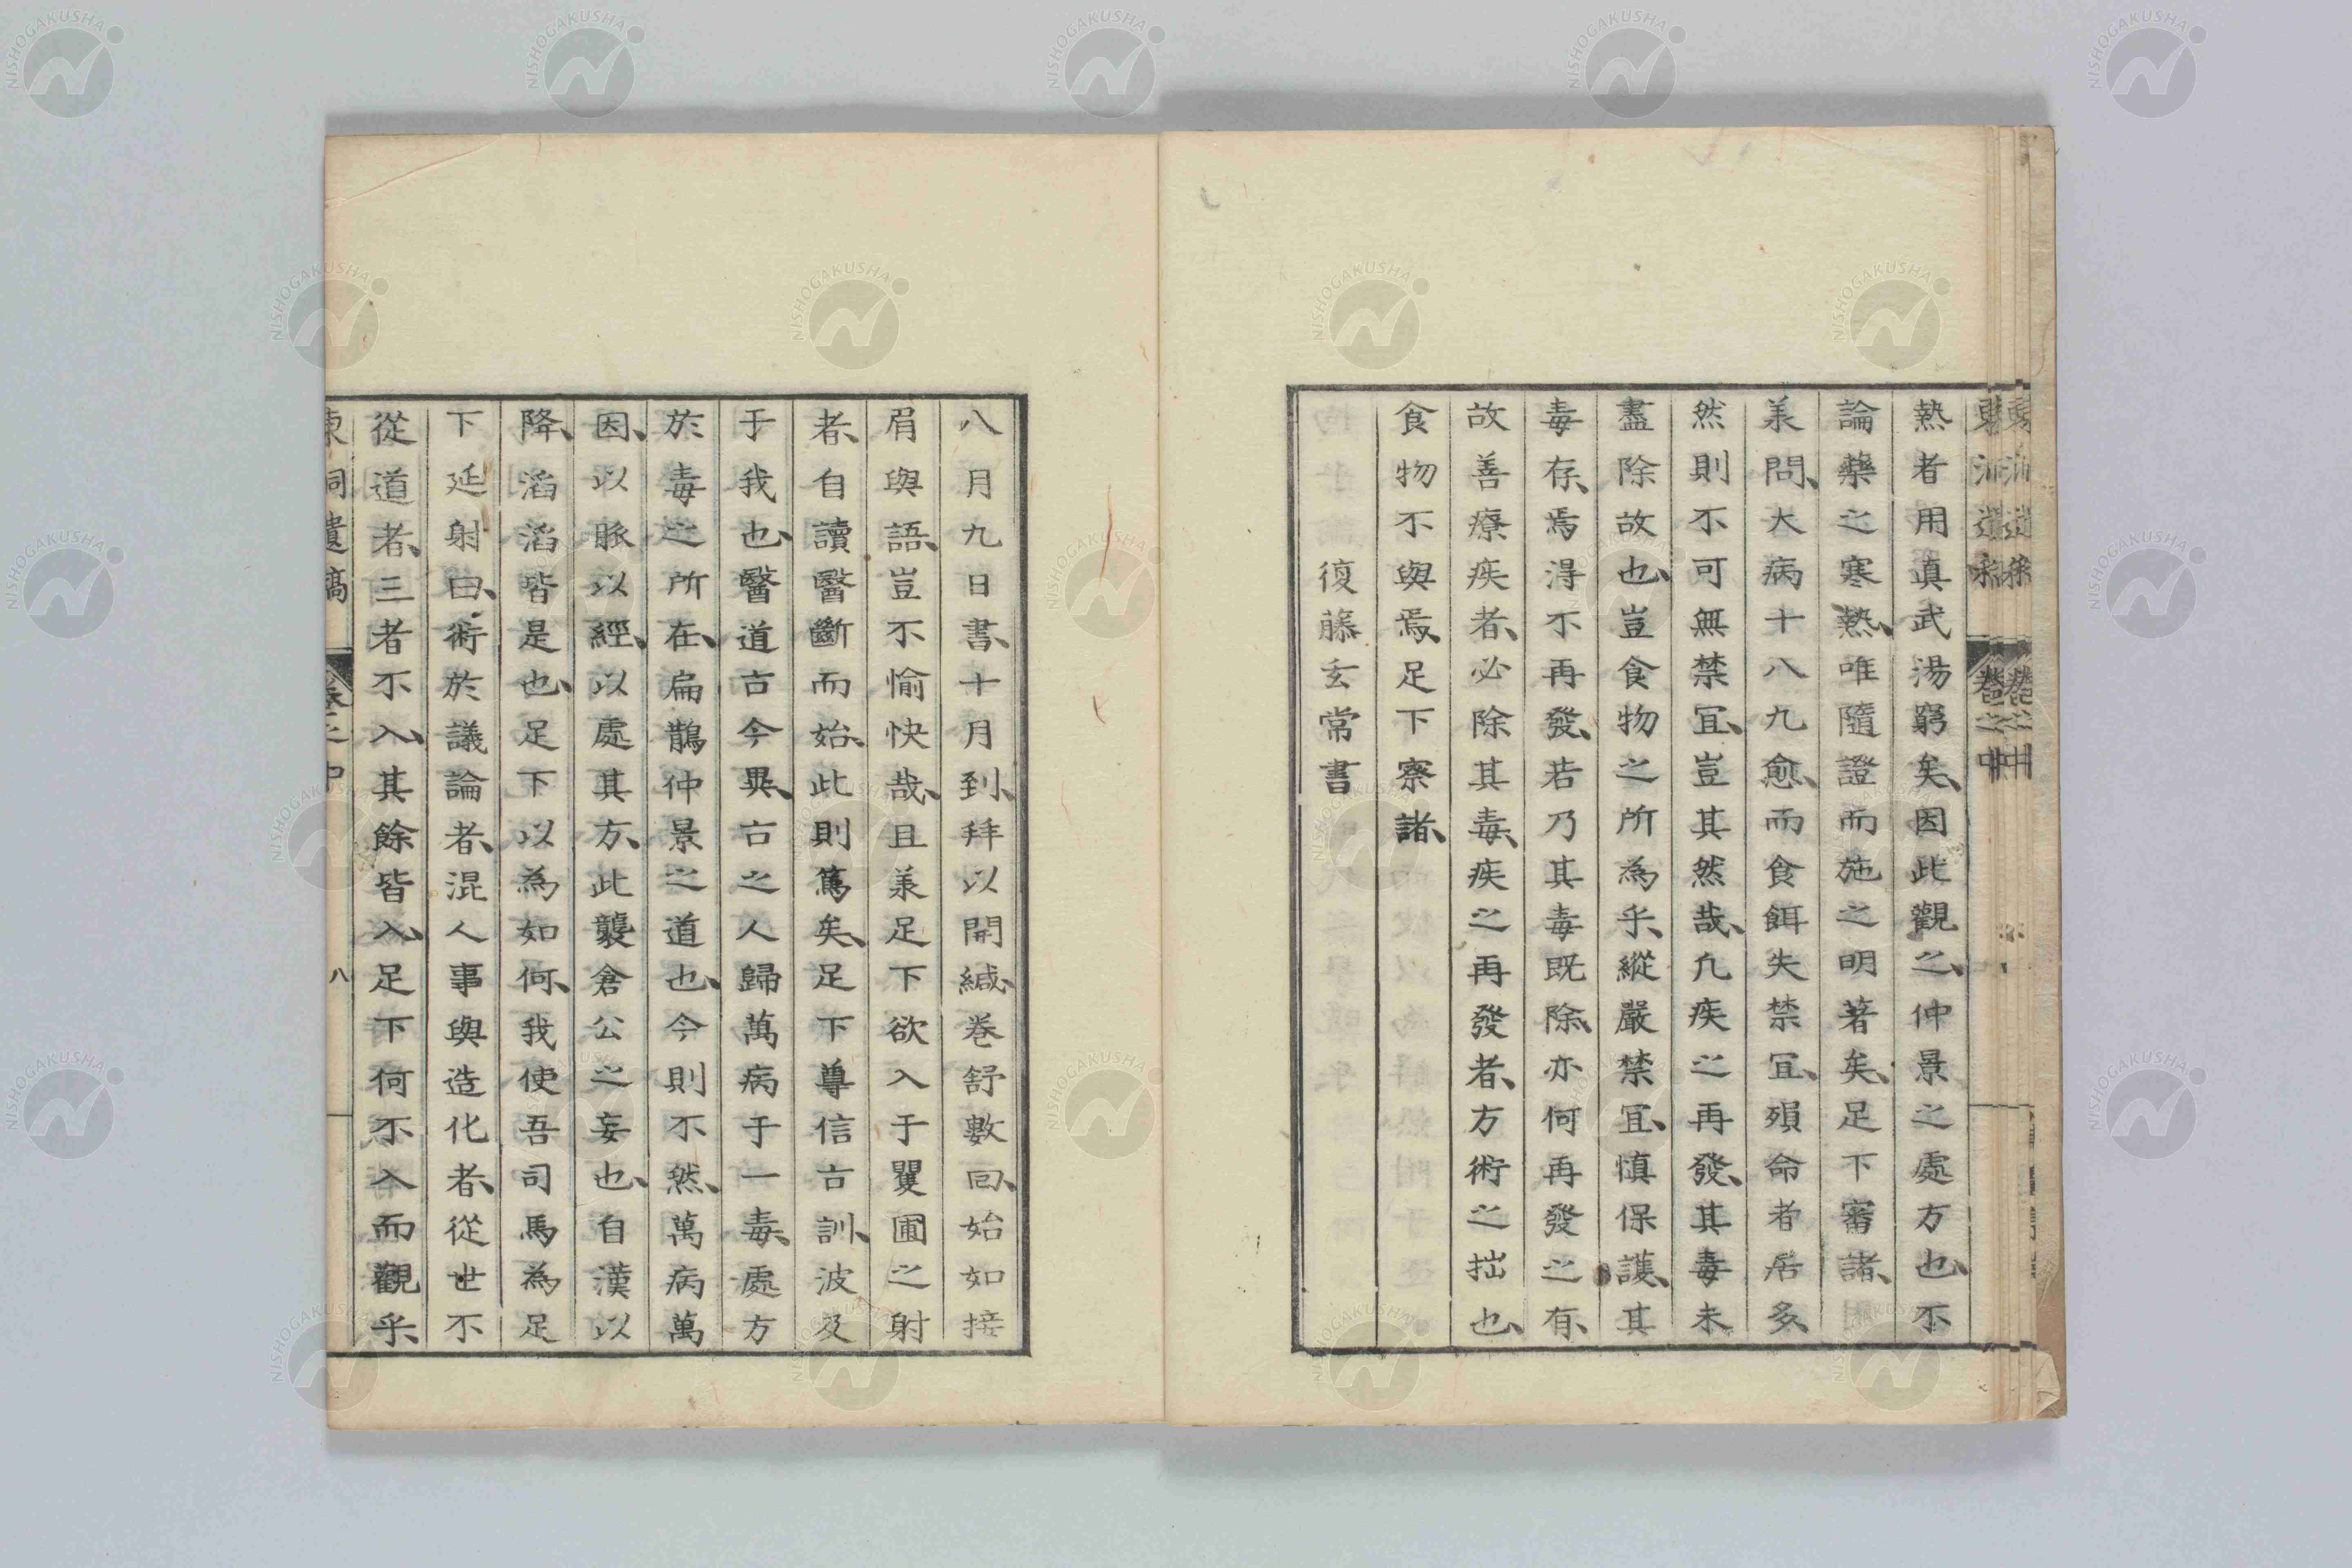 熱者用眞武湯窮矣、因此觀之、仲景之處方也、不
論藥之寒熱、唯隨證而施之明著矣、足下審諸、
兼問、大病十八九愈、而食餌失禁宜、殞命者居多、
然則不可無禁宜、豈其然哉、凡疾之再發、其毒未
盡除故也、豈食物之所為乎、縱嚴禁宜、慎保護、其
毒存、焉得不再發、若乃其毒既除、亦何再發之有、
故善療疾者、必除其毒、疾之再發者、方術之拙也、
食物不與焉、足下察諸、
復藤玄常書
八月九日書、十月到、拜以開緘、卷舒數回、始如接
眉與語、豈不愉快哉、且兼足下欲入于矍圃之射
者、自讀醫斷而始、此則篤矣、足下尊信古訓、波及
于我也、醫道古今異、古之人歸萬病于一毒、處方
於毒之所在、扁鵲仲景之道也、今則不然、萬病萬
因、以脈以經、以處其方、此襲倉公之妄也、自漢以
降、滔滔皆是也、足下以為如何、我使吾司馬為足
下延射曰、術於議論者、混人事與造化者、從世不
從道者、三者不入、其餘皆入、足下何不入而觀乎、
東洞遺稿 卷之中 八